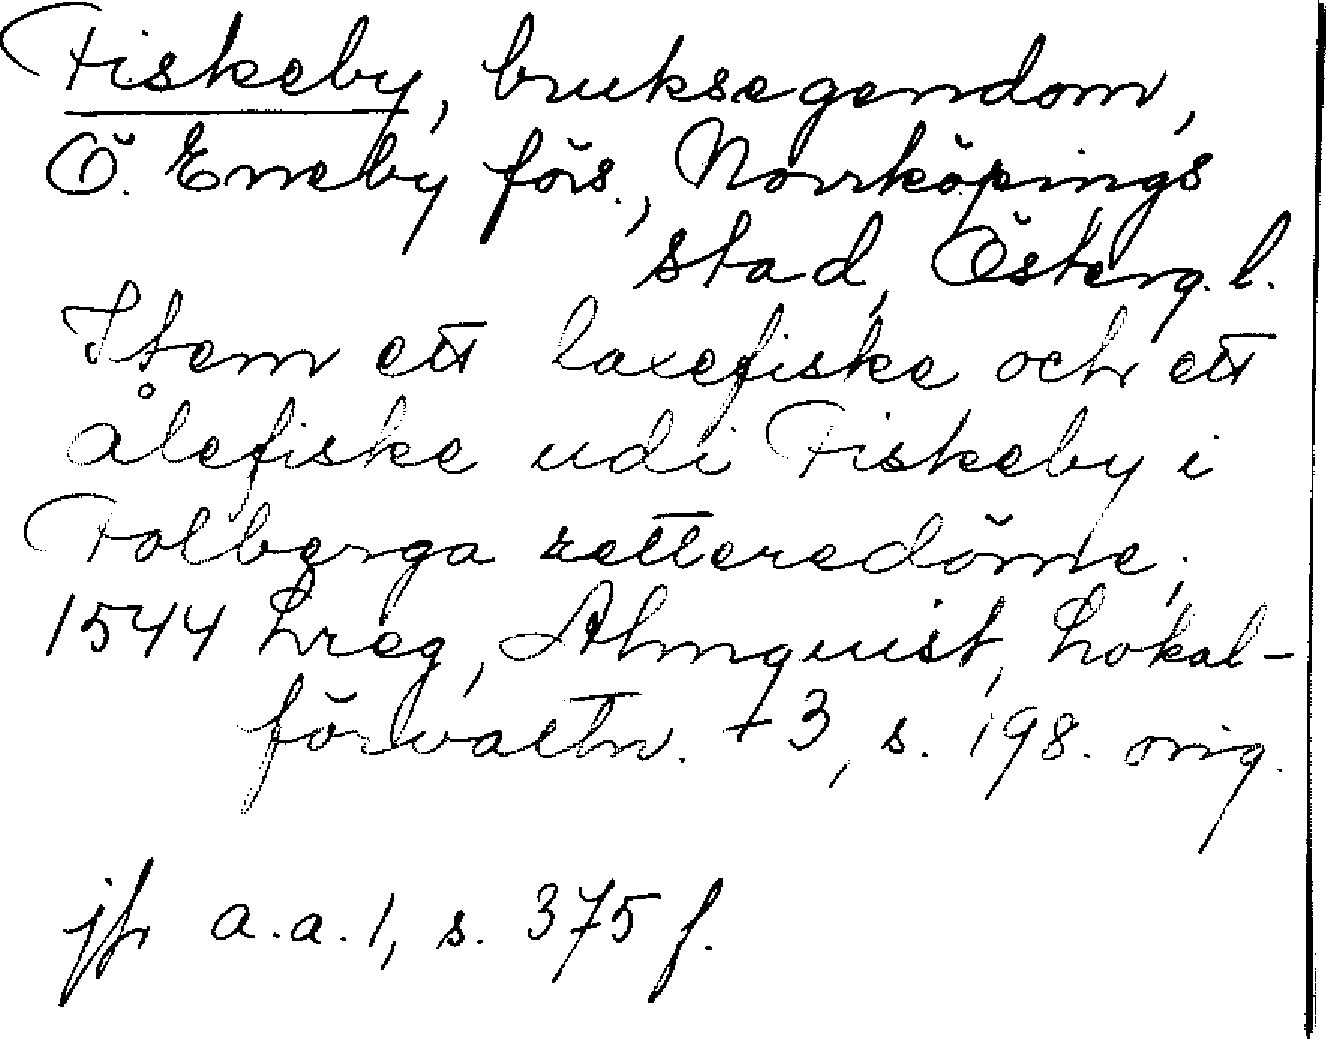 Fiskeby, bruksegendom,
Ö. Eneby förs., Norrköpings
stad, Österg. l.
Item ett laxefiske och ett
ålefiske udi Fiskeby i
Folberga retteredöme,
1544 Lreg, Almquist, Lokal-
förvaltn. + 3, s. 198. orig.
jfr a.a. 1, s. 375 f.